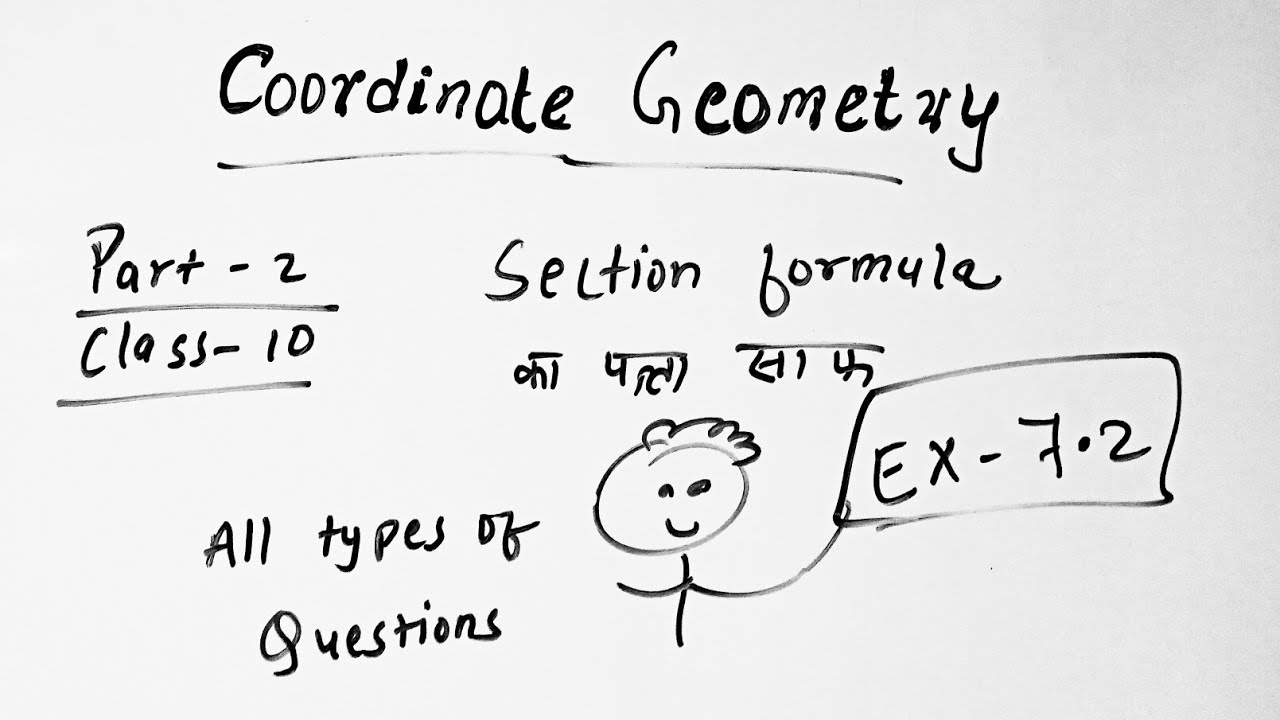 Coordinate Geometry
Part - 2
Class - 10
Section formula
का पत्ता साफ
EX - 7.2
All types of
Questions